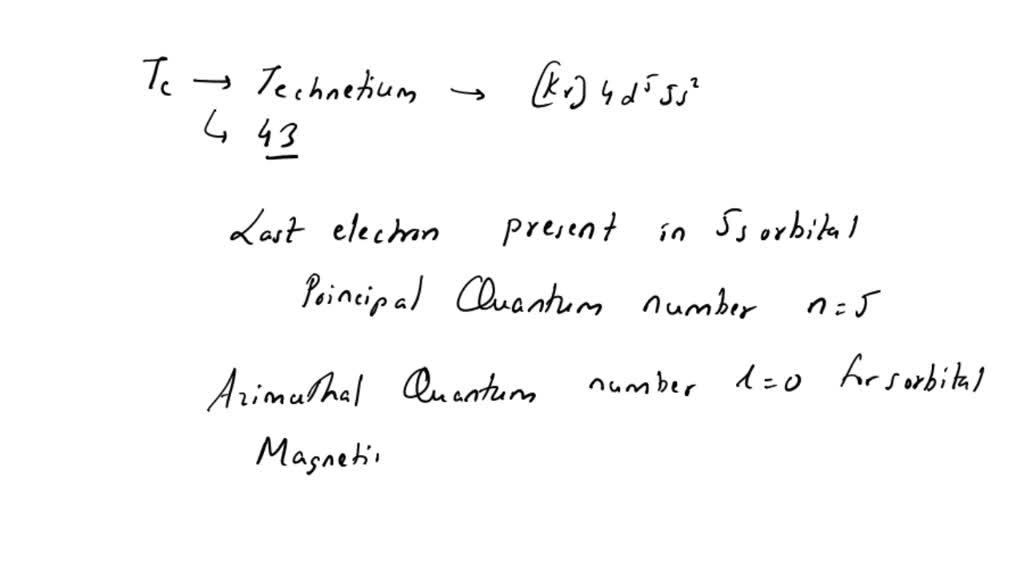 Tc → Technetium → [Kr] 4d⁵ 5s²
↳ 43
Last electron present in 5s orbital
Poincipal Quantum number n = 5
Azimuthal Quantum number l = 0 for s orbital
Magneti